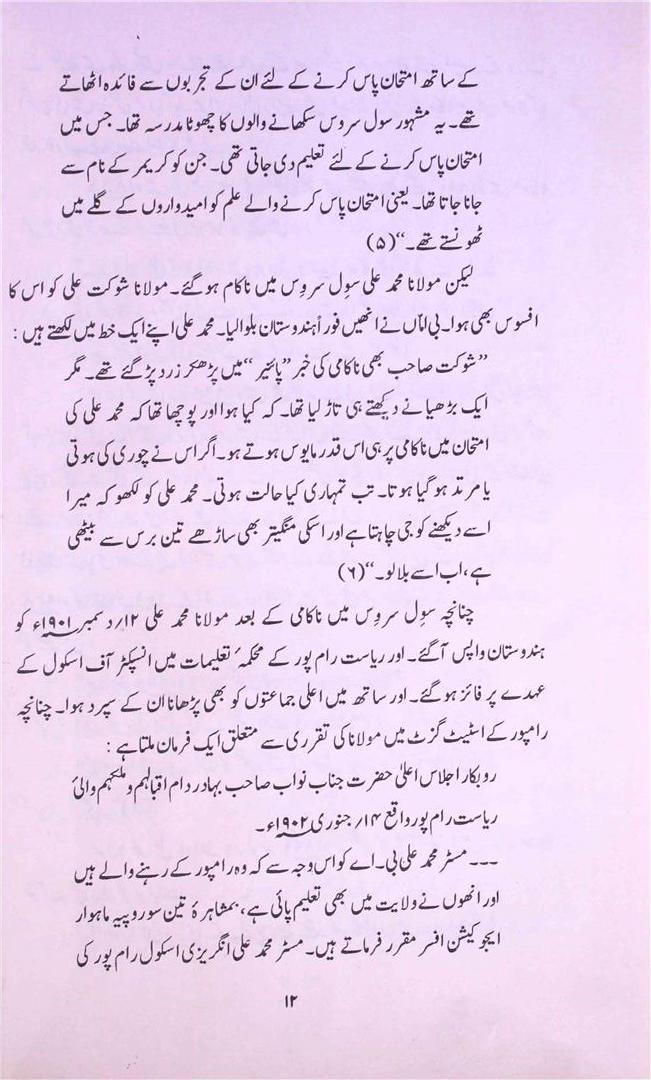 کے ساتھ امتحان پاس کرنے کے لئے ان کے تجربوں سے فائدہ اٹھاتے
تھے۔ یہ مشہور سول سروس سکھانے والوں کا چھوٹا مدرسہ تھا۔ جس میں
امتحان پاس کرنے کے لئے تعلیم دی جاتی تھی۔ جن کو کریمر کے نام سے
جانا جاتا تھا۔ یعنی امتحان پاس کرنے والے علم کو امیدواروں کے گلے میں
ٹھونستے تھے۔“ (۵)
لیکن مولانا محمد علی سوِل سروِس میں ناکام ہو گئے۔ مولانا شوکت علی کو اس کا
افسوس بھی ہوا۔ بی امّاں نے انھیں فوراً ہندوستان بلوالیا۔ محمد علی اپنے ایک خط میں لکھتے ہیں :
”شوکت صاحب بھی ناکامی کی خبر ”پائنیر“ میں پڑھکر زرد پڑ گئے تھے۔ مگر
ایک بڑھیا نے دیکھتے ہی تاڑ لیا تھا۔ کہ کیا ہوا اور پوچھا تھا کہ محمد علی کی
امتحان میں ناکامی پر ہی اس قدر مایوس ہوتے ہو۔ اگر اس نے چوری کی ہوتی
یا مرتد ہو گیا ہوتا۔ تب تمہاری کیا حالت ہوتی۔ محمد علی کو لکھو کہ میرا
اسے دیکھنے کو جی چاہتا ہے اور اسکی منگیتر بھی ساڑھے تین برس سے بیٹھی
ہے، اب اسے بلا لو۔“ (۶)
چنانچہ سوِل سروِس میں ناکامی کے بعد مولانا محمد علی ۱۲؍ دسمبر ۱۹۰۱ء کو
ہندوستان واپس آگئے۔ اور ریاست رام پور کے محکمۂ تعلیمات میں انسپکٹر آف اسکول کے
عہدے پر فائز ہو گئے۔ اور ساتھ میں اعلی جماعتوں کو بھی پڑھانا ان کے سپرد ہوا۔ چنانچہ
رامپور کے اسٹیٹ گزٹ میں مولانا کی تقرری سے متعلق ایک فرمان ملتا ہے :
روبکار اجلاس اعلیٰ حضرت جناب نواب صاحب بہادر دام اقبالہم و ملکہم والیٔ
ریاست رام پور واقع ۱۴؍ جنوری ۱۹۰۲ء۔
۔۔۔ مسٹر محمد علی بی۔ اے کو اس وجہ سے کہ وہ رامپور کے رہنے والے ہیں
اور انھوں نے ولایت میں بھی تعلیم پائی ہے، بمشاہرۂ تین سو روپیہ ماہوار
ایجوکیشن افسر مقرر فرماتے ہیں۔ مسٹر محمد علی انگریزی اسکول رام پور کی
۱۲